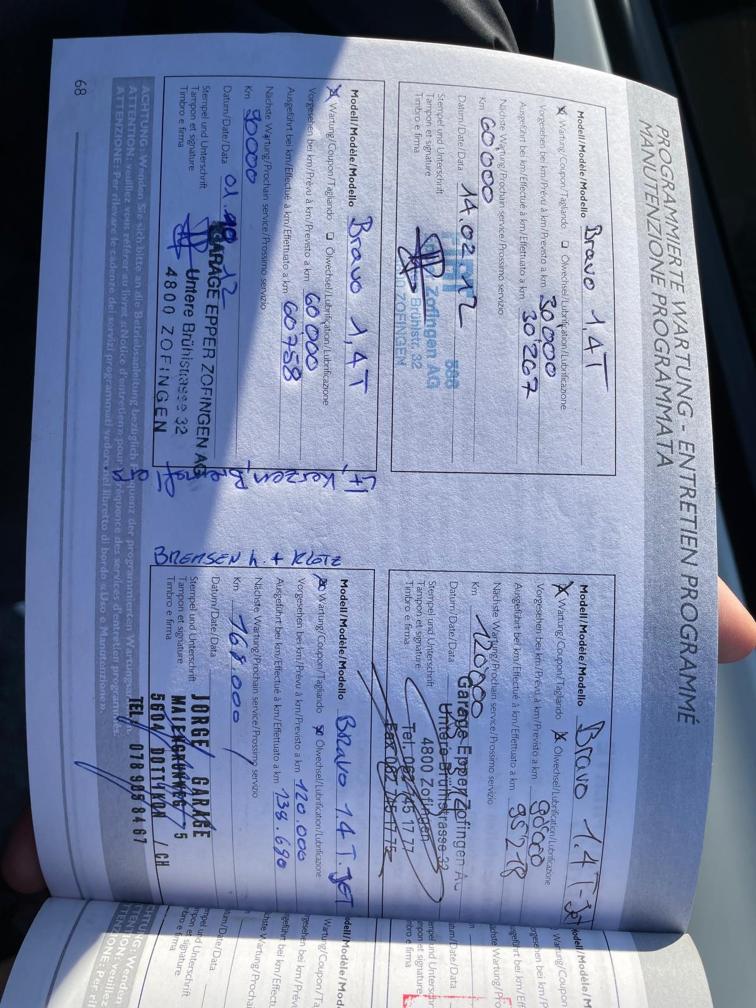 PROGRAMMIERTE WARTUNG - ENTRETIEN PROGRAMMÉ
MANUTENZIONE PROGRAMMATA
Modell/Modèle/Modello Bravo 1,4T
X Wartung/Coupon/Tagliando ❑ Ölwechsel/Lubrification/Lubrificazione
Vorgesehen bei km/Prévu à km/Previsto a km 30'000
Ausgeführt bei km/Effectué à km/Effettuato a km 30'267
Nächste Wartung/Prochain service/Prossimo servizio
Km 60'000
Datum/Date/Data 14.02.12
Stempel und Unterschrift
Tampon et signature
Timbro e firma
Zofingen AG
Brühlstr. 32
ZOFINGEN
Modell/Modèle/Modello Bravo 1.4 T-Jet
X Wartung/Coupon/Tagliando X Ölwechsel/Lubrification/Lubrificazione
Vorgesehen bei km/Prévu à km/Previsto a km 90'000
Ausgeführt bei km/Effectué à km/Effettuato a km 95'218
Nächste Wartung/Prochain service/Prossimo servizio
Km 120'000
Datum/Date/Data
Stempel und Unterschrift
Tampon et signature
Timbro e firma
Garage Epper Zofingen AG
Untere Brühlstrasse 32
4800 Zofingen
Modell/Modèle/Modello Bravo 1,4T
X Wartung/Coupon/Tagliando ❑ Ölwechsel/Lubrification/Lubrificazione
Vorgesehen bei km/Prévu à km/Previsto a km 60'000
Ausgeführt bei km/Effectué à km/Effettuato a km 60'758
Nächste Wartung/Prochain service/Prossimo servizio
Km 90'000
Datum/Date/Data
Stempel und Unterschrift
Tampon et signature
Timbro e firma
GARAGE EPPER ZOFINGEN AG
Untere Brühlstrasse 32
4800 ZOFINGEN
Kerzen,
BREMSEN h. + KLÖTZ
Modell/Modèle/Modello Bravo 1.4 T.JET
X Wartung/Coupon/Tagliando X Ölwechsel/Lubrification/Lubrificazione
Vorgesehen bei km/Prévu à km/Previsto a km 120.000
Ausgeführt bei km/Effectué à km/Effettuato a km 138.690
Nächste Wartung/Prochain service/Prossimo servizio
Km 168.000
Datum/Date/Data
Stempel und Unterschrift
Tampon et signature
Timbro e firma
JORGE GARAGE
5604 DOTTIKON / CH
TEL.
ACHTUNG: Wenden Sie sich bitte an die Betriebsanleitung bezüglich der programmierten
ATTENTION: veuillez vous référer au livret «Notice d'entretien» pour fréquence des services d'entretien programmés.
ATTENZIONE: Per rilevare le cadenze dei servizi programmati vedere nel libretto di bordo «Uso e Manutenzione».
68